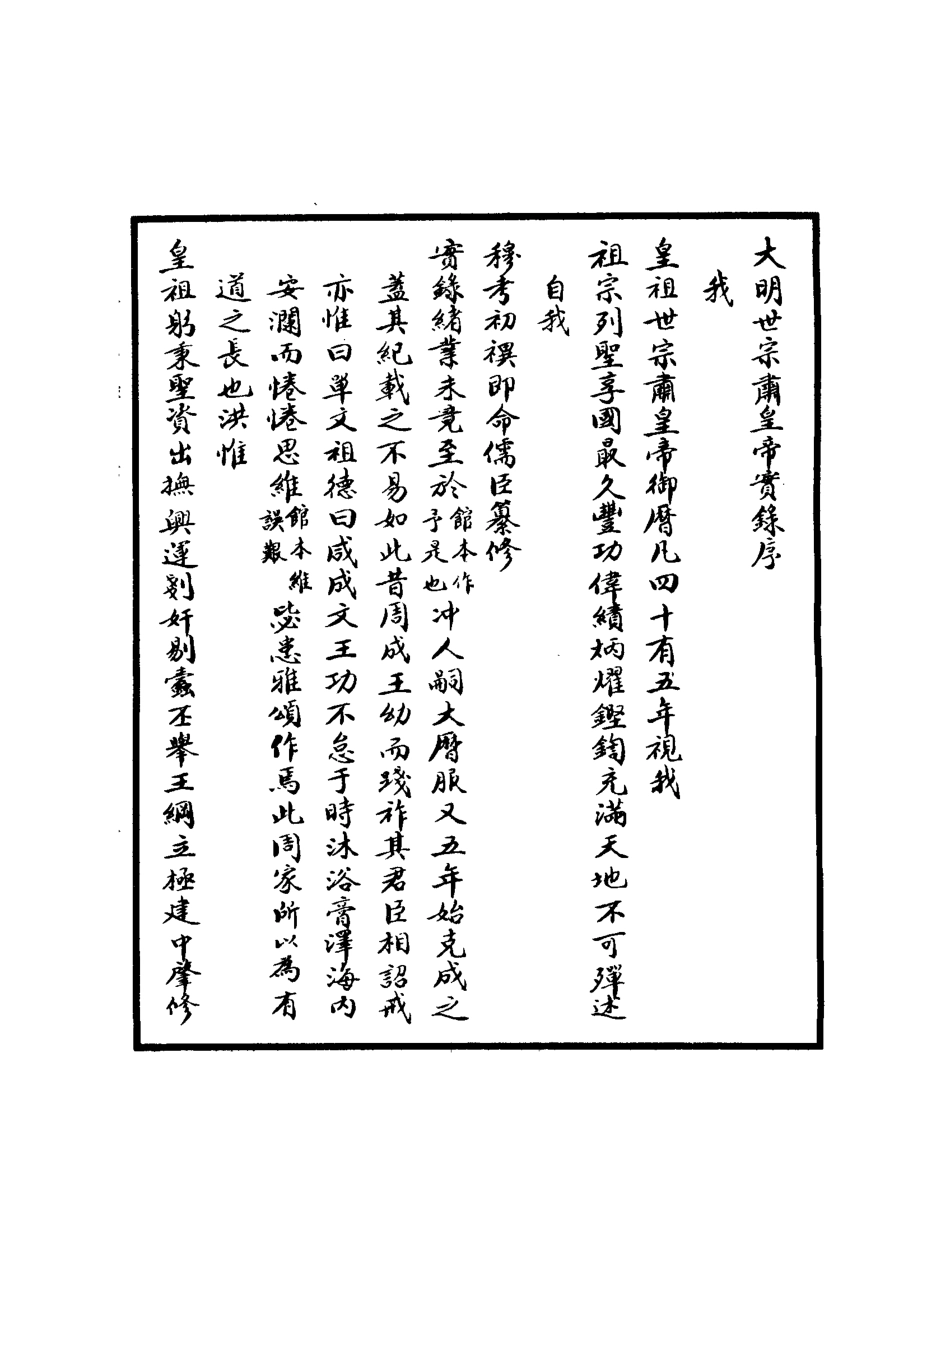 大明世宗肅皇帝實錄序
我
皇祖世宗肅皇帝御曆凡四十有五年視我
祖宗列聖享國最久豐功偉績炳燿鏗鍧充滿天地不可殫述
自我
穆考初禩即命儒臣纂修
實錄緒業未竟至於館本作予是也冲人嗣大曆服又五年始克成之
蓋其紀載之不易如此昔周成王幼而踐祚其君臣相詔戒
亦惟曰單文祖德曰咸成文王功不怠于時沐浴膏澤海內
安瀾而惓惓思維館本維誤艱毖患雅頌作焉此周家所以為有
道之長也洪惟
皇祖躬秉聖資出撫興運剗奸剔蠹丕舉王綱立極建中肇修